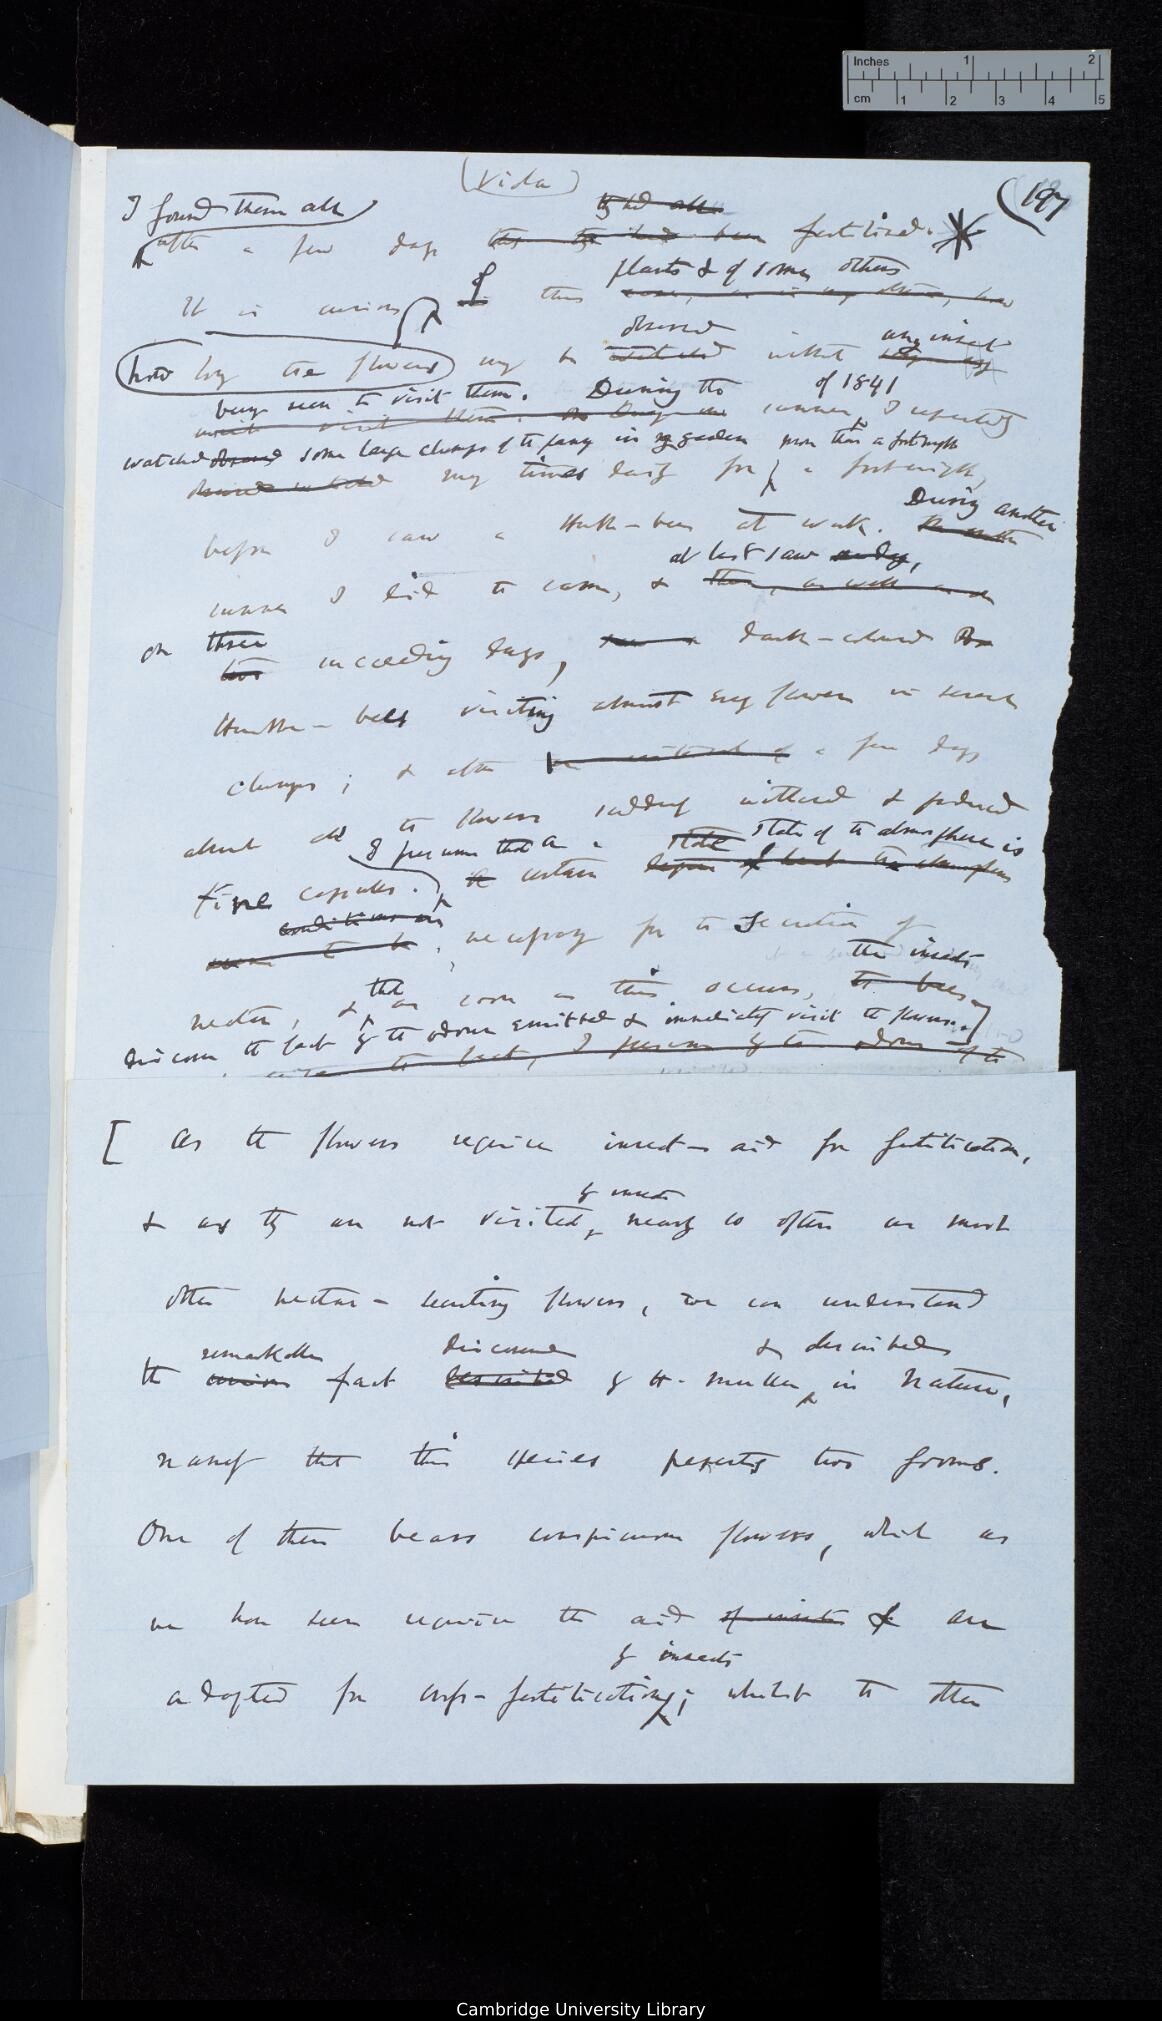 Inches 1 2
cm 1 2 3 4 5
(Viola)
197
I found them all
they had all
after a few days been fertilised.
plants & of some others
It is curious of this
observed any insect
how long the flowers may be watched without
being seen to visit them. During the of 1841
visit them. summer, I repeatedly
watched observed some large clumps of the pansy in my garden more than a fortnight
many times daily for a fortnight,
During another
before I saw a Humble-bee at work.
at last saw
summer I did the same, &
on three
two succeeding days, dark-coloured
Humble-bees visiting almost every flower in several
clumps; & after a few days
almost all the flowers suddenly withered & produced
I presume that a state state of the atmosphere is
fine capsules. certain
conditions
seems to be, necessary for the secretion of
the insects
that
nectar, & as soon as this occurs, the bees
discover the fact by the odour emitted & immediately visit the flowers.
the fact, I presume by the odour of the
[ As the flowers require insect-aid for fertilisation,
by insects
& as they are not visited, nearly so often as most
other nectar-secreting flowers, we can understand
remarkable discovered & described
the curious fact described by H. Müller in Nature,
namely that this species presents two forms.
One of them bears conspicuous flowers, which as
we have seen require the aid of insects & are
by insects
adapted for cross-fertilisation; whilst the other
Cambridge University Library